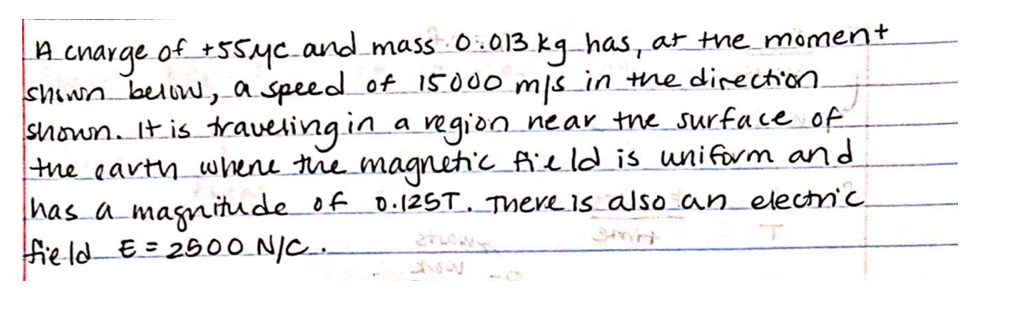 A charge of +55μC and mass 0.013 kg has, at the moment
shown below, a speed of 15000 m/s in the direction
shown. It is traveling in a region near the surface of
the earth where the magnetic field is uniform and
has a magnitude of 0.125T. There is also an electric
field E = 2500 N/C.